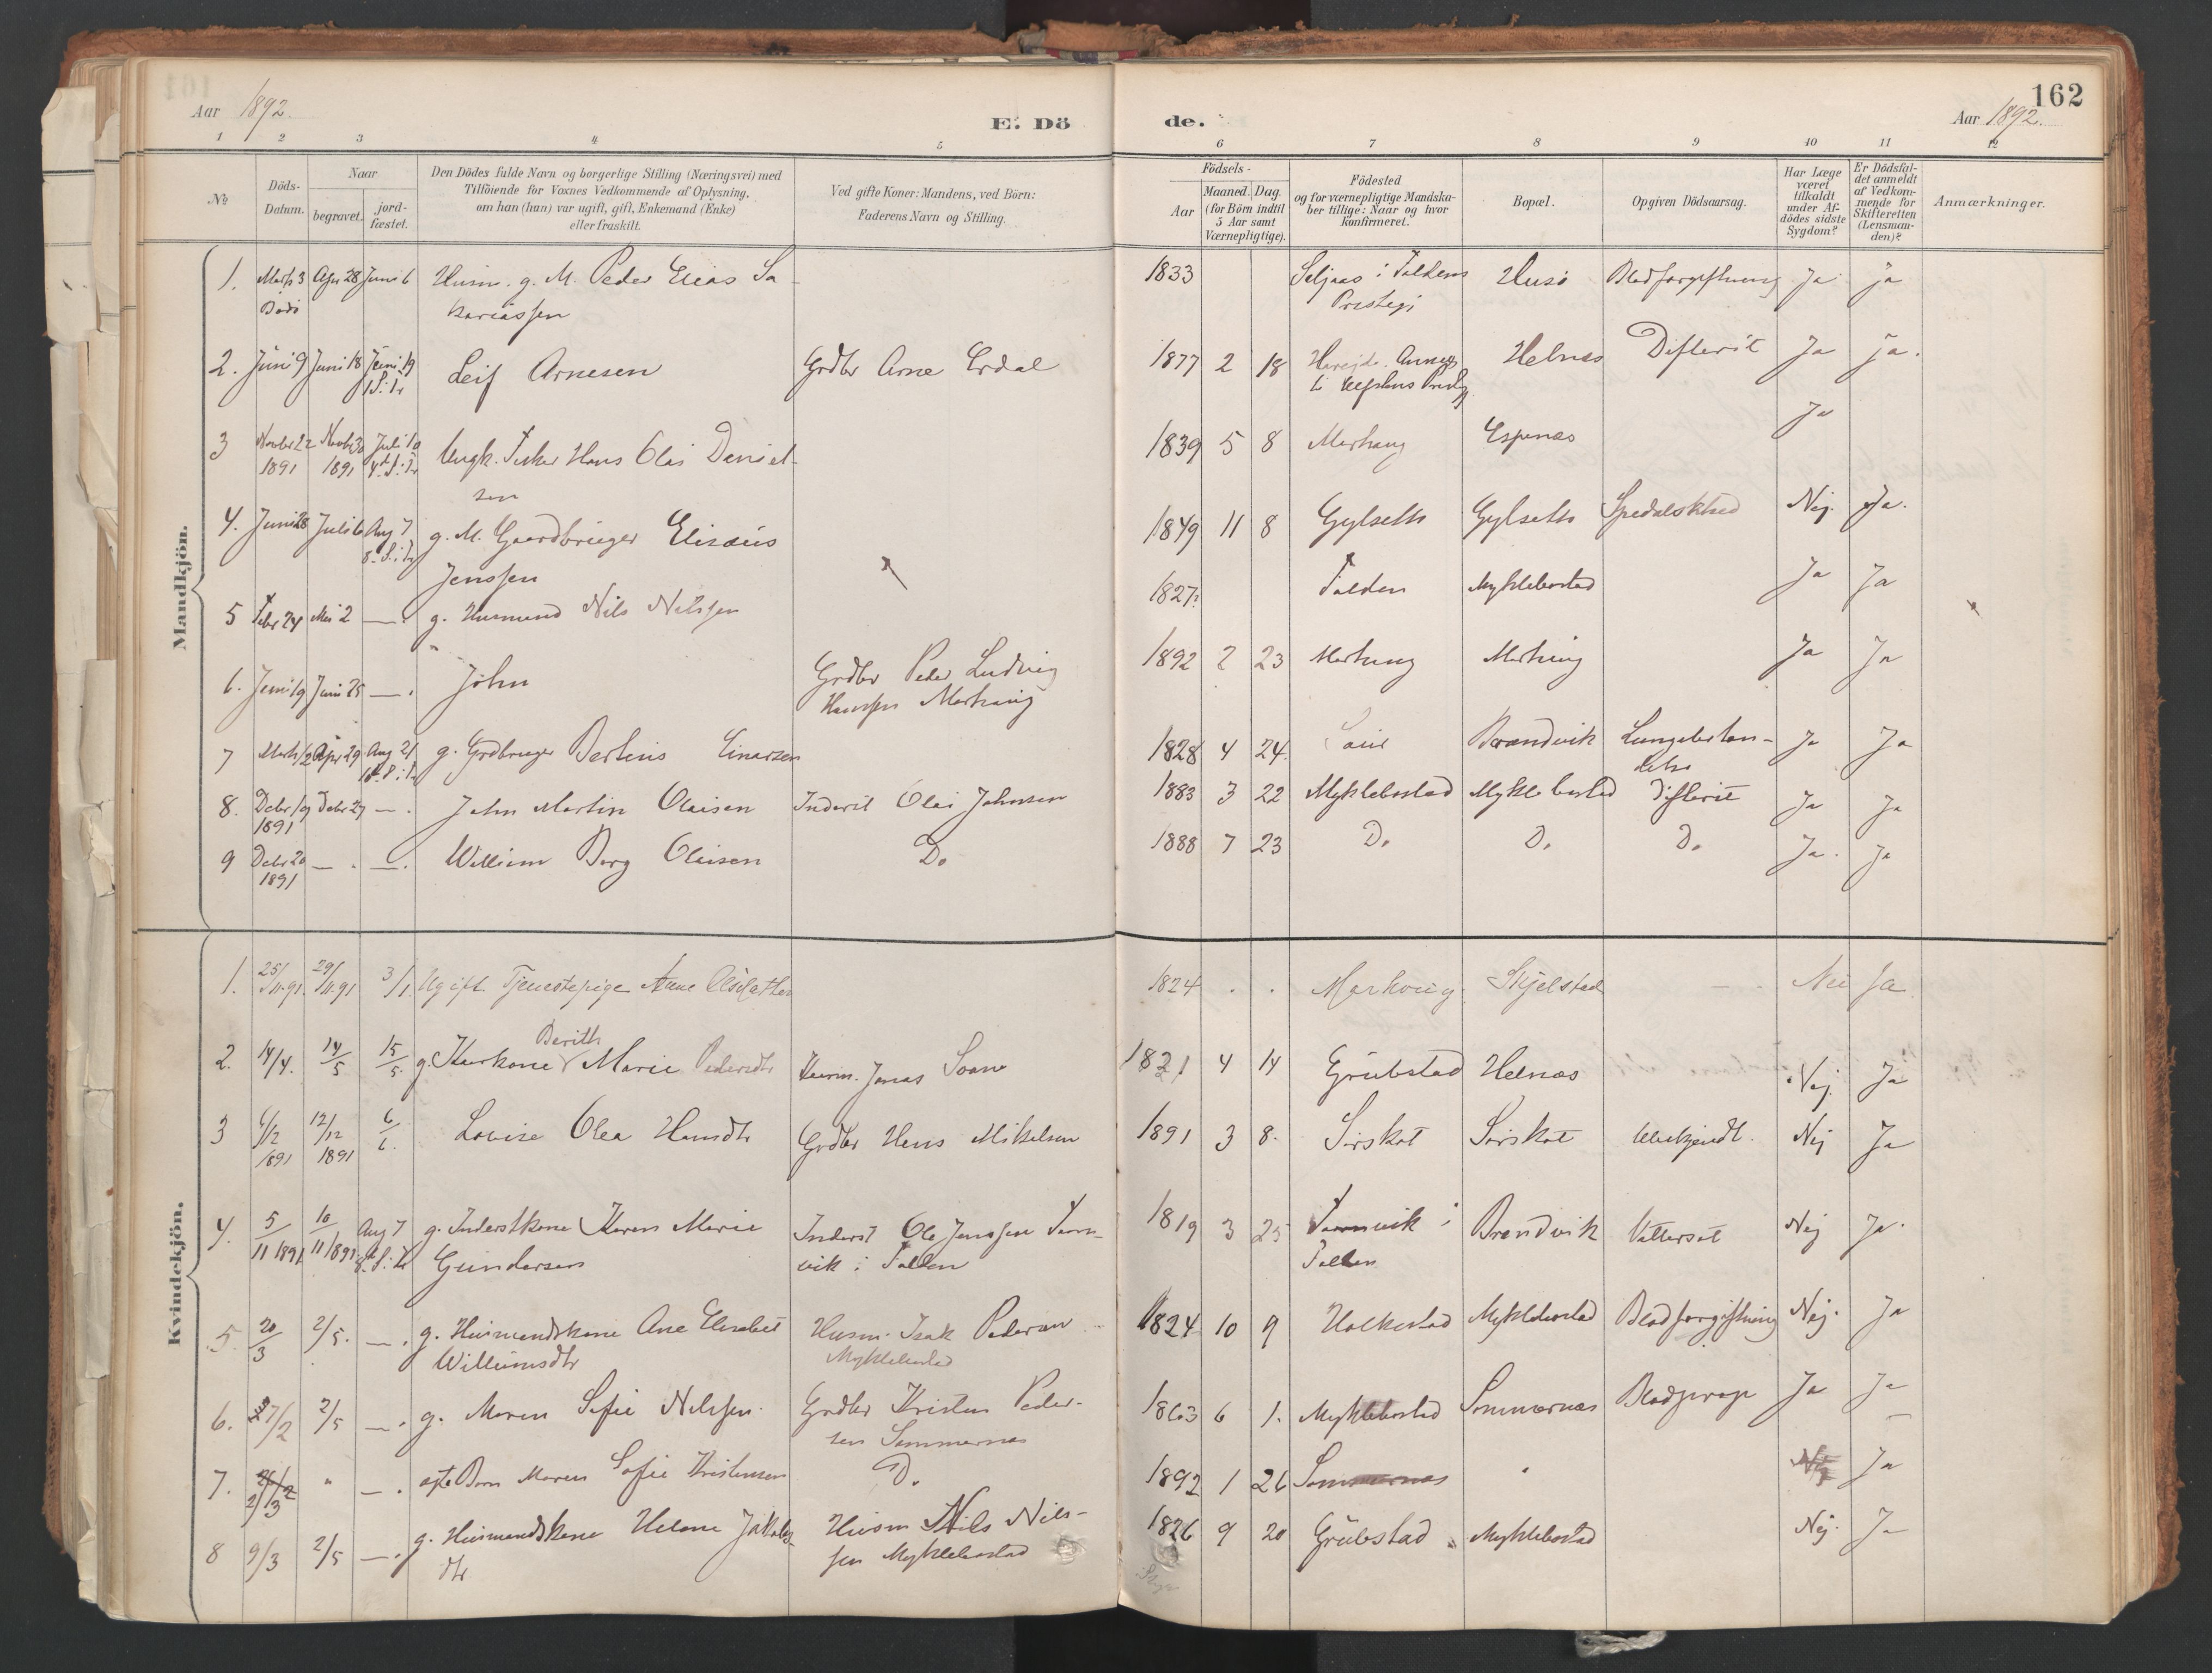 162
Aar 1892.
E. Dö
de.
Aar 1892.
1 2 3 4 5 6 7 8 9 10 11 12
№
Döds-
Datum.
Naar
begravet.
jord-
fæstet.
Den Dödes fulde Navn og borgerlige Stilling (Næringsvei) med
Tilföiende for Voxnes Vedkommende af Oplysning,
om han (hun) var ugift, gift, Enkemand (Enke)
eller fraskilt.
Ved gifte Koner: Mandens, ved Börn:
Faderens Navn og Stilling.
Födsels-
Aar
Maaned. Dag.
(for Börn indtil
5 Aar samt
Værnepligtige).
Födested
og for værnepligtige Mandska-
ber tillige: Naar og hvor
konfirmeret.
Bopæl.
Opgiven Dödsaarsag.
Har Læge
været
tilkaldt
under Af-
dödes sidste
Sygdom?
Er Dödsfal-
det anmeldt
af Vedkom-
mende for
Skifteretten
(Lensman-
den)?
Anmærkninger.
Mandkjön.
1. Marts 3 Apr 28 Juni 6 Husm. g. M. Peder Elias Sa- 1833 i Foldens Husö Blodforgiftning Ja ja
Bodö kariassen Prestegj
2. Juni 9 Juni 18 Juni 19 Leif Arnesen Grdbr Arne Erdal 1877 2 18 Annex Helnes Difterit Ja ja.
1 S. i Tr
3 Novbr 22 Novbr 30 Juli 10 Ungk. Fisker Hans Olai Daniel- 1839 5 8 Mørhaug Espenes Ja
1891 1891 4 S. i Tr sen
4. Juni 28 Juli 6 Aug 7 g. M. Gaardbruger Elisæus 1849 11 8 Gylseth Gylseth Spedalskhed Nej. Ja.
8. S. i Tr Jenssen
5 Febr 24 Mai 2 — . g. Husmand Nils Nilssen 1827 Folden Myklebostad Ja Ja
6. Juni 19 Juni 25 — . John Grdbr Peder Ludvig 1892 2 23 Mørhaug Mørhaug Ja Ja
Hanssen Mørhaug
7 Marts 12 Apr 29 Aug 21 g. Grdbruger Bertius Einarsen 1828 4 24. Brændvik Lungebetæn- Ja Ja
10. S. i Tr delse
8. Debr 19 Debr 27 — . John Martin Olaisen Inderst Olai Johnsen 1883 3 22 Myklebostad Myklebostad Difterit Ja Ja
1891
9 Debr 20 — . — . William Borg Olaisen Do 1888 7 23 Do Do Do Ja. Ja
1891
Kvindekjön.
1. 25/11.91. 29/11.91 3/1. Ugift Tjenestepige Anne 1824 . . Mørhoug. Skjelstad — Nei Ja
2. 14/4. 14/5 15/5. g. Kaarkone Berith Marie Pedersdtr Kaarm. Jonas 1821 4 14 Grübstad Helnæs Nej. Ja
3 6/12 1891 12/12 1891 6/6. Lovise Olea Hansdtr Grdbr Hans Mikelsen 1891 3 8. Sørskot Sørskot Ubekjendt. Nej Ja
4. 5/11 1891 10/11 1891 Aug 7 g. Inderstkone Karen Marie Inderst Ole Jenssen 1819 3 25 i Brændvik Vattersot Nej Ja.
8. S. i Tr Gundersen vik i Folden Folden
5. 20/3 2/5. — . g. Husmandskone Ane Elisabet Husm. Isak Pedersen 1824 10 9 Holkestad Myklebostad Blodforgiftning Nej. Ja
Willumsdtr Myklebostad
6. 27/2 2/5 — . g. Maren Sofie Nilssen. Grdbr Kristen Peder- 1863 6 1. Myklebostad Sommernes Ja Ja
sen Sommernes
7. 2/3 " — . ægte Barn Maren Sofie Kristensen Do 1892 1 26 Sommernes " Nej Ja
8 9/3 2/5 — . g. Husmandskone Helene Jakobs- Husm Nils Nils- 1826 9 20 Grübstad Myklebostad Nej. Ja
dtr sen Myklebostad